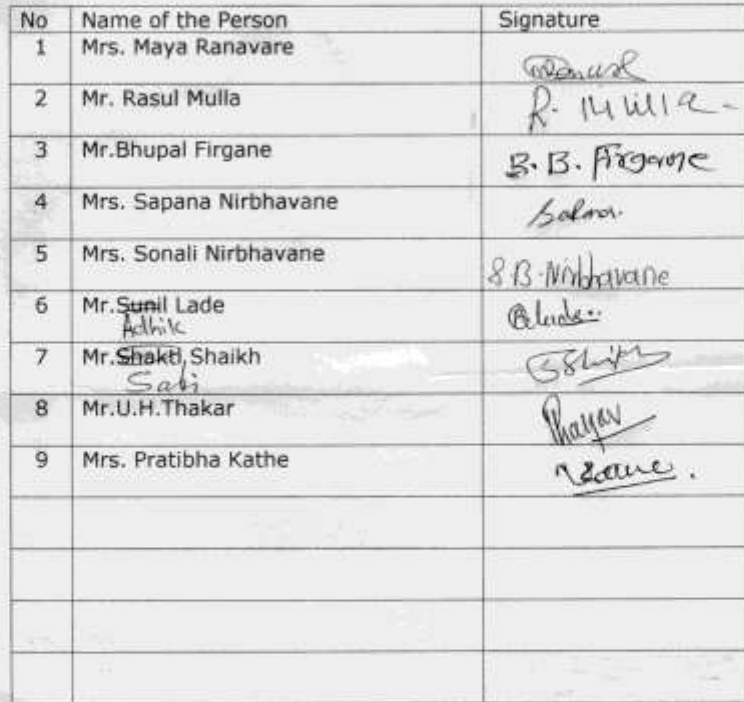 No Name of the Person Signature
1 Mrs. Maya Ranavare
2 Mr. Rasul Mulla R. Mulla
3 Mr.Bhupal Firgane B. B. Firgane
4 Mrs. Sapana Nirbhavane
5 Mrs. Sonali Nirbhavane S B. Nirbhavane
6 Mr.Sunil Lade
Adhik
7 Mr.Shakti Shaikh
Sabi
8 Mr.U.H.Thakar
9 Mrs. Pratibha Kathe